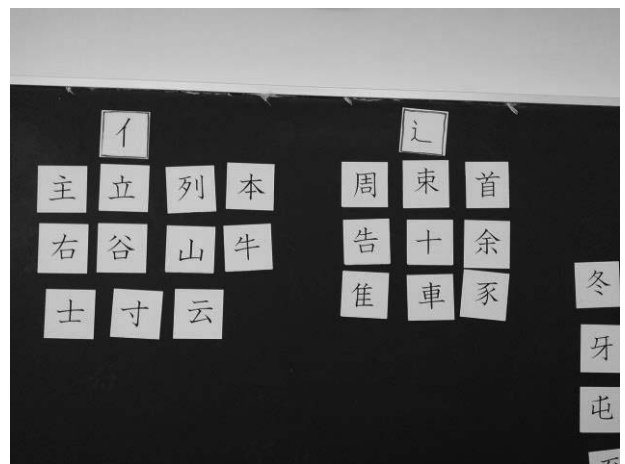 亻
主 立 列 本
右 谷 山 牛
士 寸 云
辶
周 束 首
告 十 余
隹 車 豕
冬
牙
屯